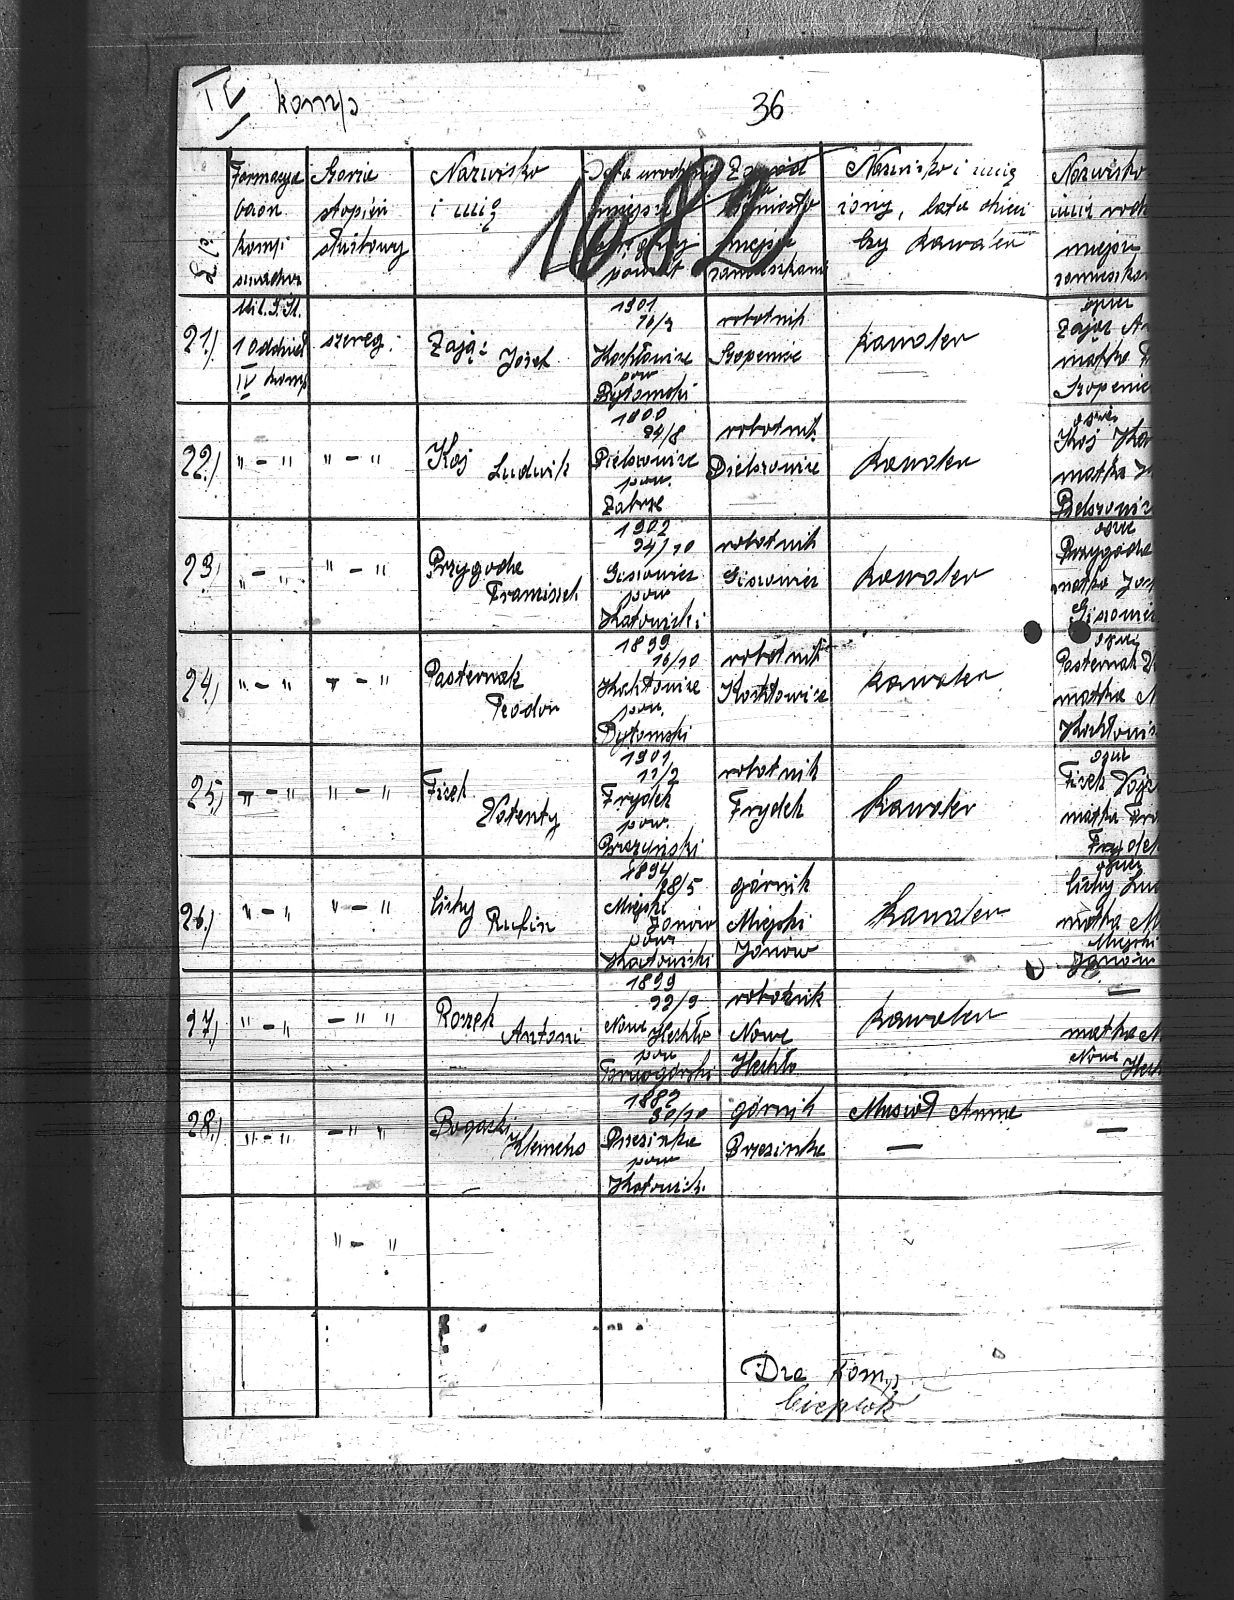 IV komp
36
1682
L.p. Formacya Szarża Nazwisko Data urodzenia Zawód Nazwisko i imię Nazwisko
baon stopień i imię miejsce miejsce żony, lata dzieci imię rodz
komp służbowy powiat zamieszkania czy kawaler miejsce
zamieszkan
21.) Mil. G. Śl. 1 Oddział IV komp szereg. Zając Józef 1901 Kochłowice pow Bytomski robotnik Szopenice kawaler ojciec Zając matka Szopenice
22.) " - " " - " Koj Ludwik 1900 24/8 Bielszowice pow. Zabrze robotnik Bielszowice kawaler Koj matka Bielszowic
23.) " - " " - " Przygoda Franciszek 1902 24/10 Giszowiec pow Katowicki robotnik Giszowiec kawaler ojciec Przygoda matka Giszowiec
24.) " - " " - " Pasternak Teodor 1899 16/10 Kochłowice pow. Bytomski robotnik Kochłowice kawaler ojciec Pasternak matka Kochłowic
25.) " - " " - " Ficek Walenty 1901 11/2 Frydek pow. Pszczyński robotnik Frydek kawaler ojciec Ficek matka Frydek
26.) " - " " - " Cichy Rufin 1894 28/5 Miejski Janów pow Katowicki górnik Miejski Janow kawaler ojciec Cichy matka Miejski Janów
27.) " - " - " " Roszek Antoni 1899 22/9 Nowe Hechło pow Tarnogórski robotnik Nowe Hechło kawaler — matka Nowe Hech
28.) " - " - " " Bogacki Klemens 1882 30/10 Brzezinka pow Katowick. górnik Brzezinka Musioł Anna — —
" - "
Dca Komp.
Cieplok